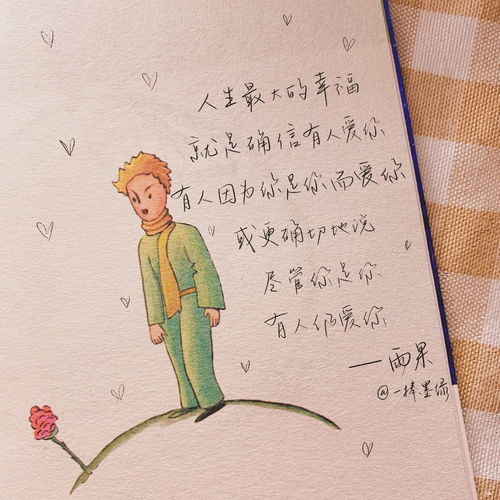 人生最大的幸福
就是确信有人爱你
有人因为你是你而爱你
或更确切地说
尽管你是你
有人仍爱你
——雨果
@一捧墨绿